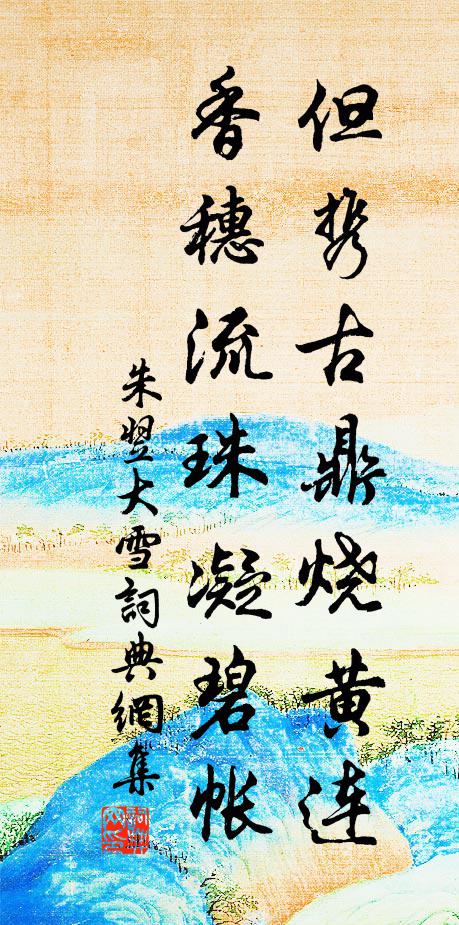 但携古鼎烧黄连
香穗流珠凝碧帐
朱翌大雪詞典網集